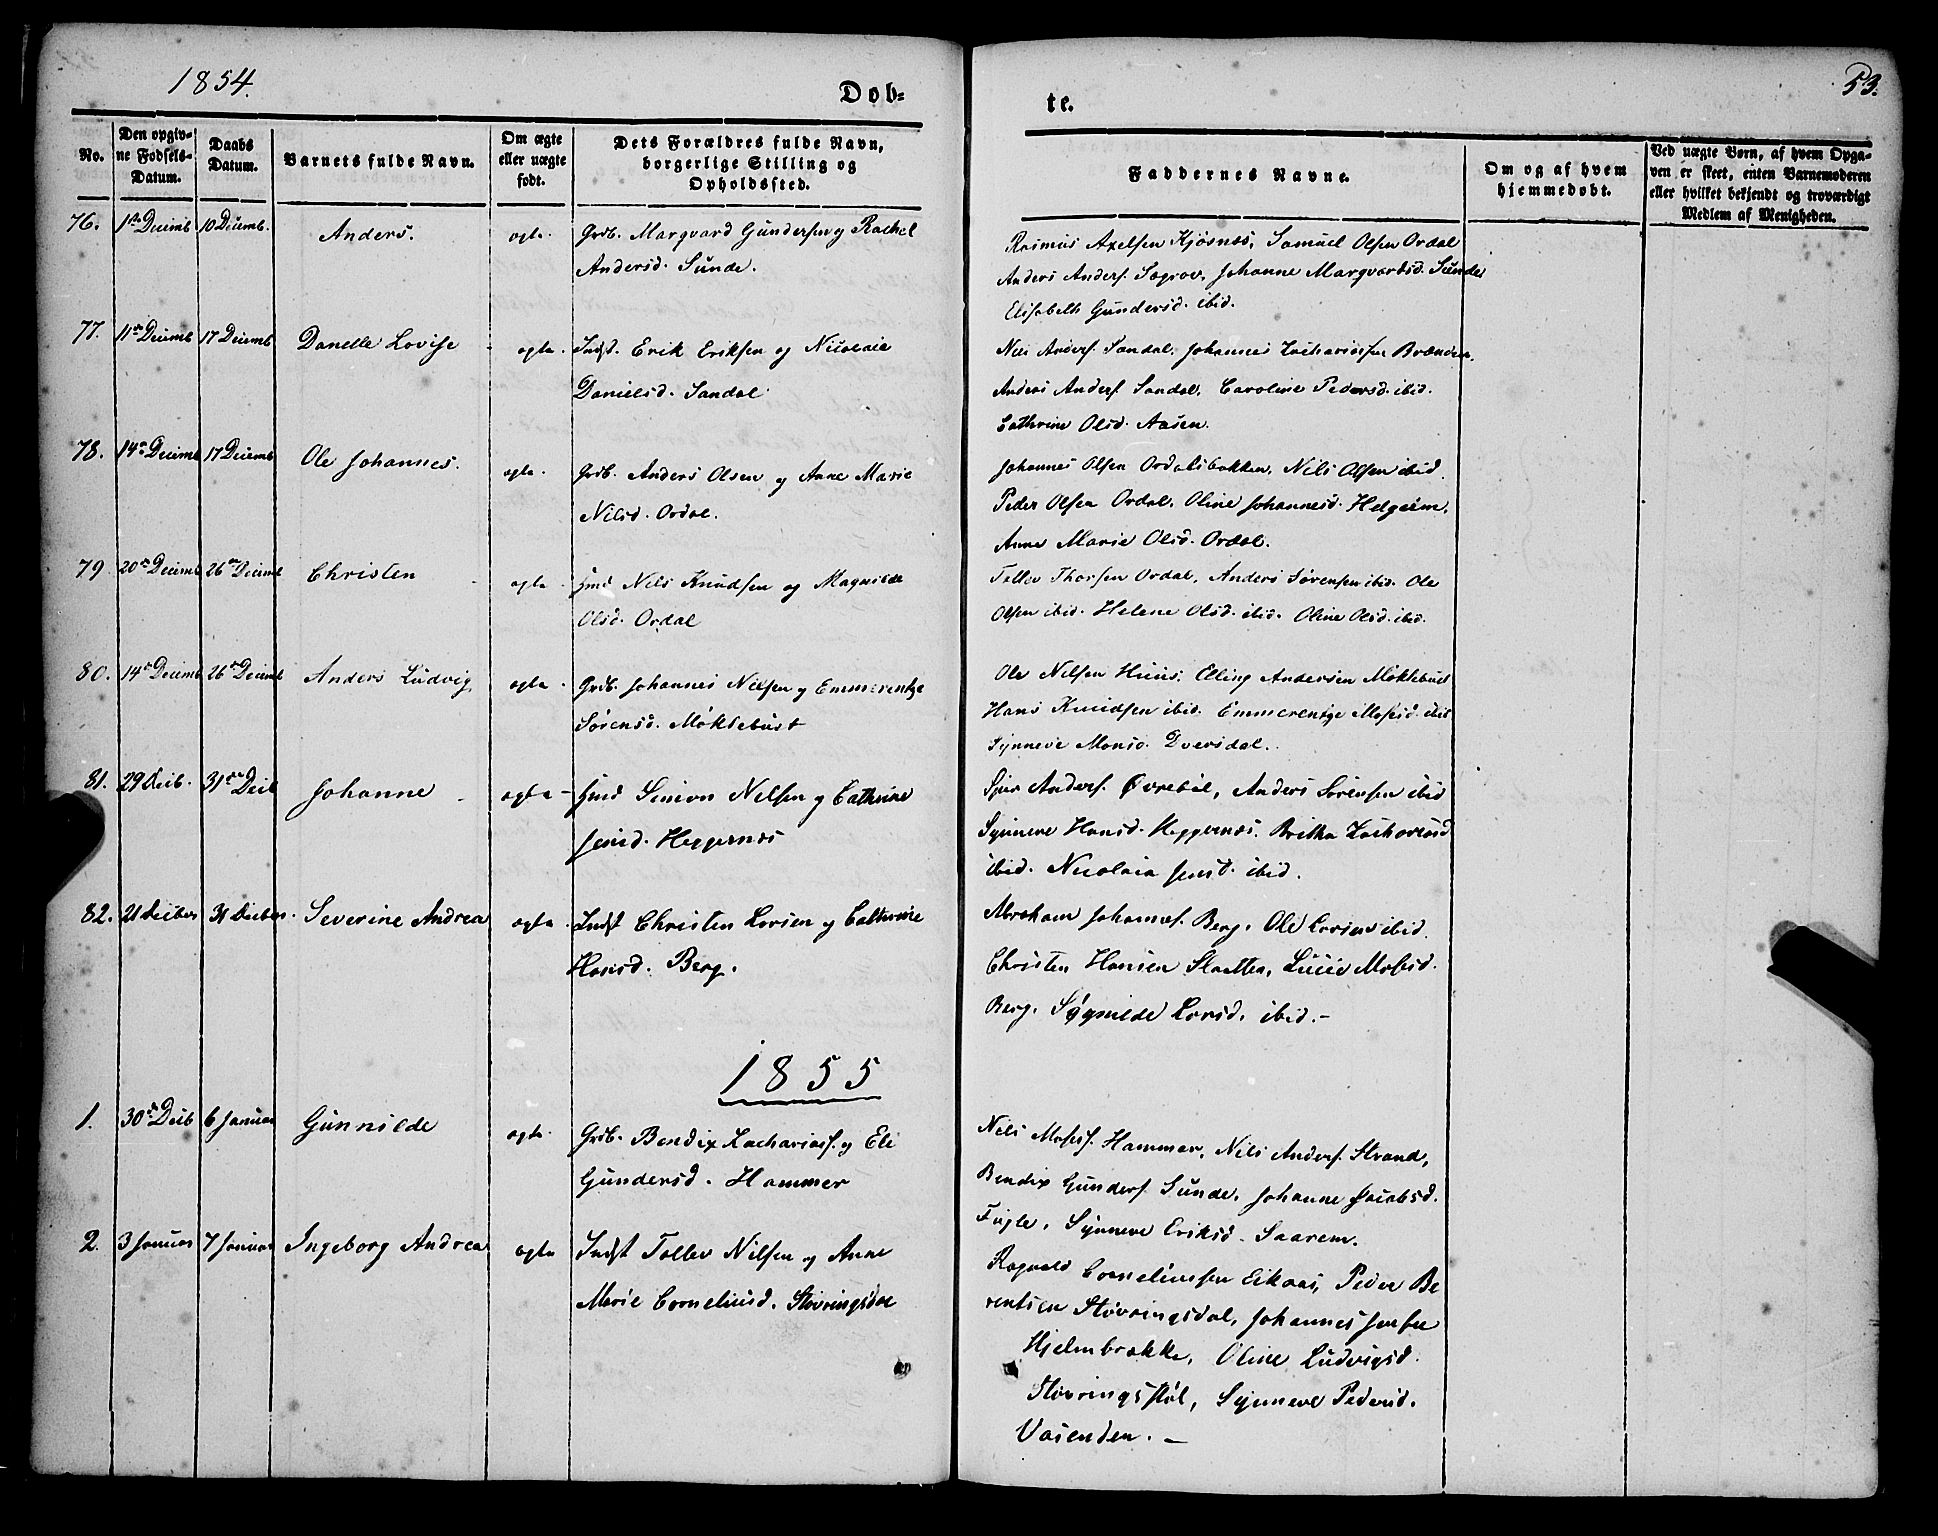 1854.
Døb-
te.
53.
No.
Den opgiv-
ne Fødsels-
Datum.
Daabs
Datum.
Barnets fulde Navn.
Om ægte
eller uægte
født.
Dets Forældres fulde Navn,
borgerlige Stilling og
Opholdssted.
Faddernes Navne.
Om og af hvem
hjemmedøbt.
Ved uægte Børn, af hvem Opga-
ven er skeet, enten Barnemoderen
eller hvilket bekjendt og troværdigt
Medlem af Menigheden.
76. 1ste Decemb 10 Decemb. Anders. ægte. Grdb. Marqvard Gundersen og Rachel
Andersd. Sunde.
Rasmus Axelsen Kjøsnæs, Samuel Olsen Ordal
Anders Anders. Søgrov, Johanne Marqvardsd. Sunde
Elisabeth Gundersd. ibid.
77. 11te Decemb 17 Decemb Danelle Lovise ægte. Indst. Erik Eriksen og Nicolaie
Danielsd. Sandal
Nils Anders. Sandal, Johannes Zachariassen Brænden.
Anders Anders. Sandal, Caroline Pedersd. ibid.
Cathrine Olsd. Aasen.
78. 14de Decemb 17 Decemb Ole Johannes. ægte. Grdb. Anders Olsen og Anne Marie
Nilsd. Ordal.
Johannes Olsen Ordalsbakken, Nils Olsen ibid.
Peder Olsen Ordal, Oline Johannesd. Helgeim,
Anne Marie Olsd. Ordal.
79. 20de Decemb 26de Decemb Christen ægte. Hmd Nils Knudsen og Magnilde
Olsd. Ordal
Tollev Thorsen Ordal, Anders Sørensen ibid. Ole
Olsen ibid. Helene Olsd. ibid. Oline Olsd. ibid.
80. 14de Decemb 26de Decemb Anders Ludvig ægte. Grdb. Johannes Nilsen og Emmerentze
Sørensd. Møklebust
Ole Nilsen Huus, Elling Andersen Møklebust
Hans Knudsen ibid. Emmerentze Mosesd. ibid
Synneve Monsd. Dversdal.
81. 29 Decb. 31te Decb Johanne ægte Hmd Simon Nilsen og Cathrine
Jensd. Heggernæs
Sjur Anders. Øvrebøe, Anders Sørensen ibid
Synneve Hansd. Heggernæs, Britha Zachariasd
ibid. Nicolaia Jensd. ibid.
82. 21 Decber 31 Decber. Severine Andrea ægte. Indst Christen Larsen og Cathrine
Hansd. Berg.
Abraham Johannes. Berg, Ole Larsen ibid.
Christen Hansen Slaatten, Lucie Mosesd.
Berg, Søgnilde Larsd. ibid.-
1855
1. 30te Decb 6 Januar Gunnilde ægte. Grdb. Bendix Zacharias. og Eli
Gundersd. Hammer
Nils Moses. Hammer, Nils Anders. Strand,
Bendix Gunders. Sunde, Johanne Jacobsd.
Fugle, Synneve Eriksd. Saarem.
2. 3 Januar 7 Januar Ingeborg Andrea ægte Indst Tollev Nilsen og Anne
Marie Corneliusd. Støvringsdal
Ragvald Corneliussen Eikaas, Peder Be
rentsen Støvringsdal, Johannes Jensen
Hjelmbrække, Oline Ludvigsd.
Støvringsstøl, Synneve Pedersd.
Vasenden. -